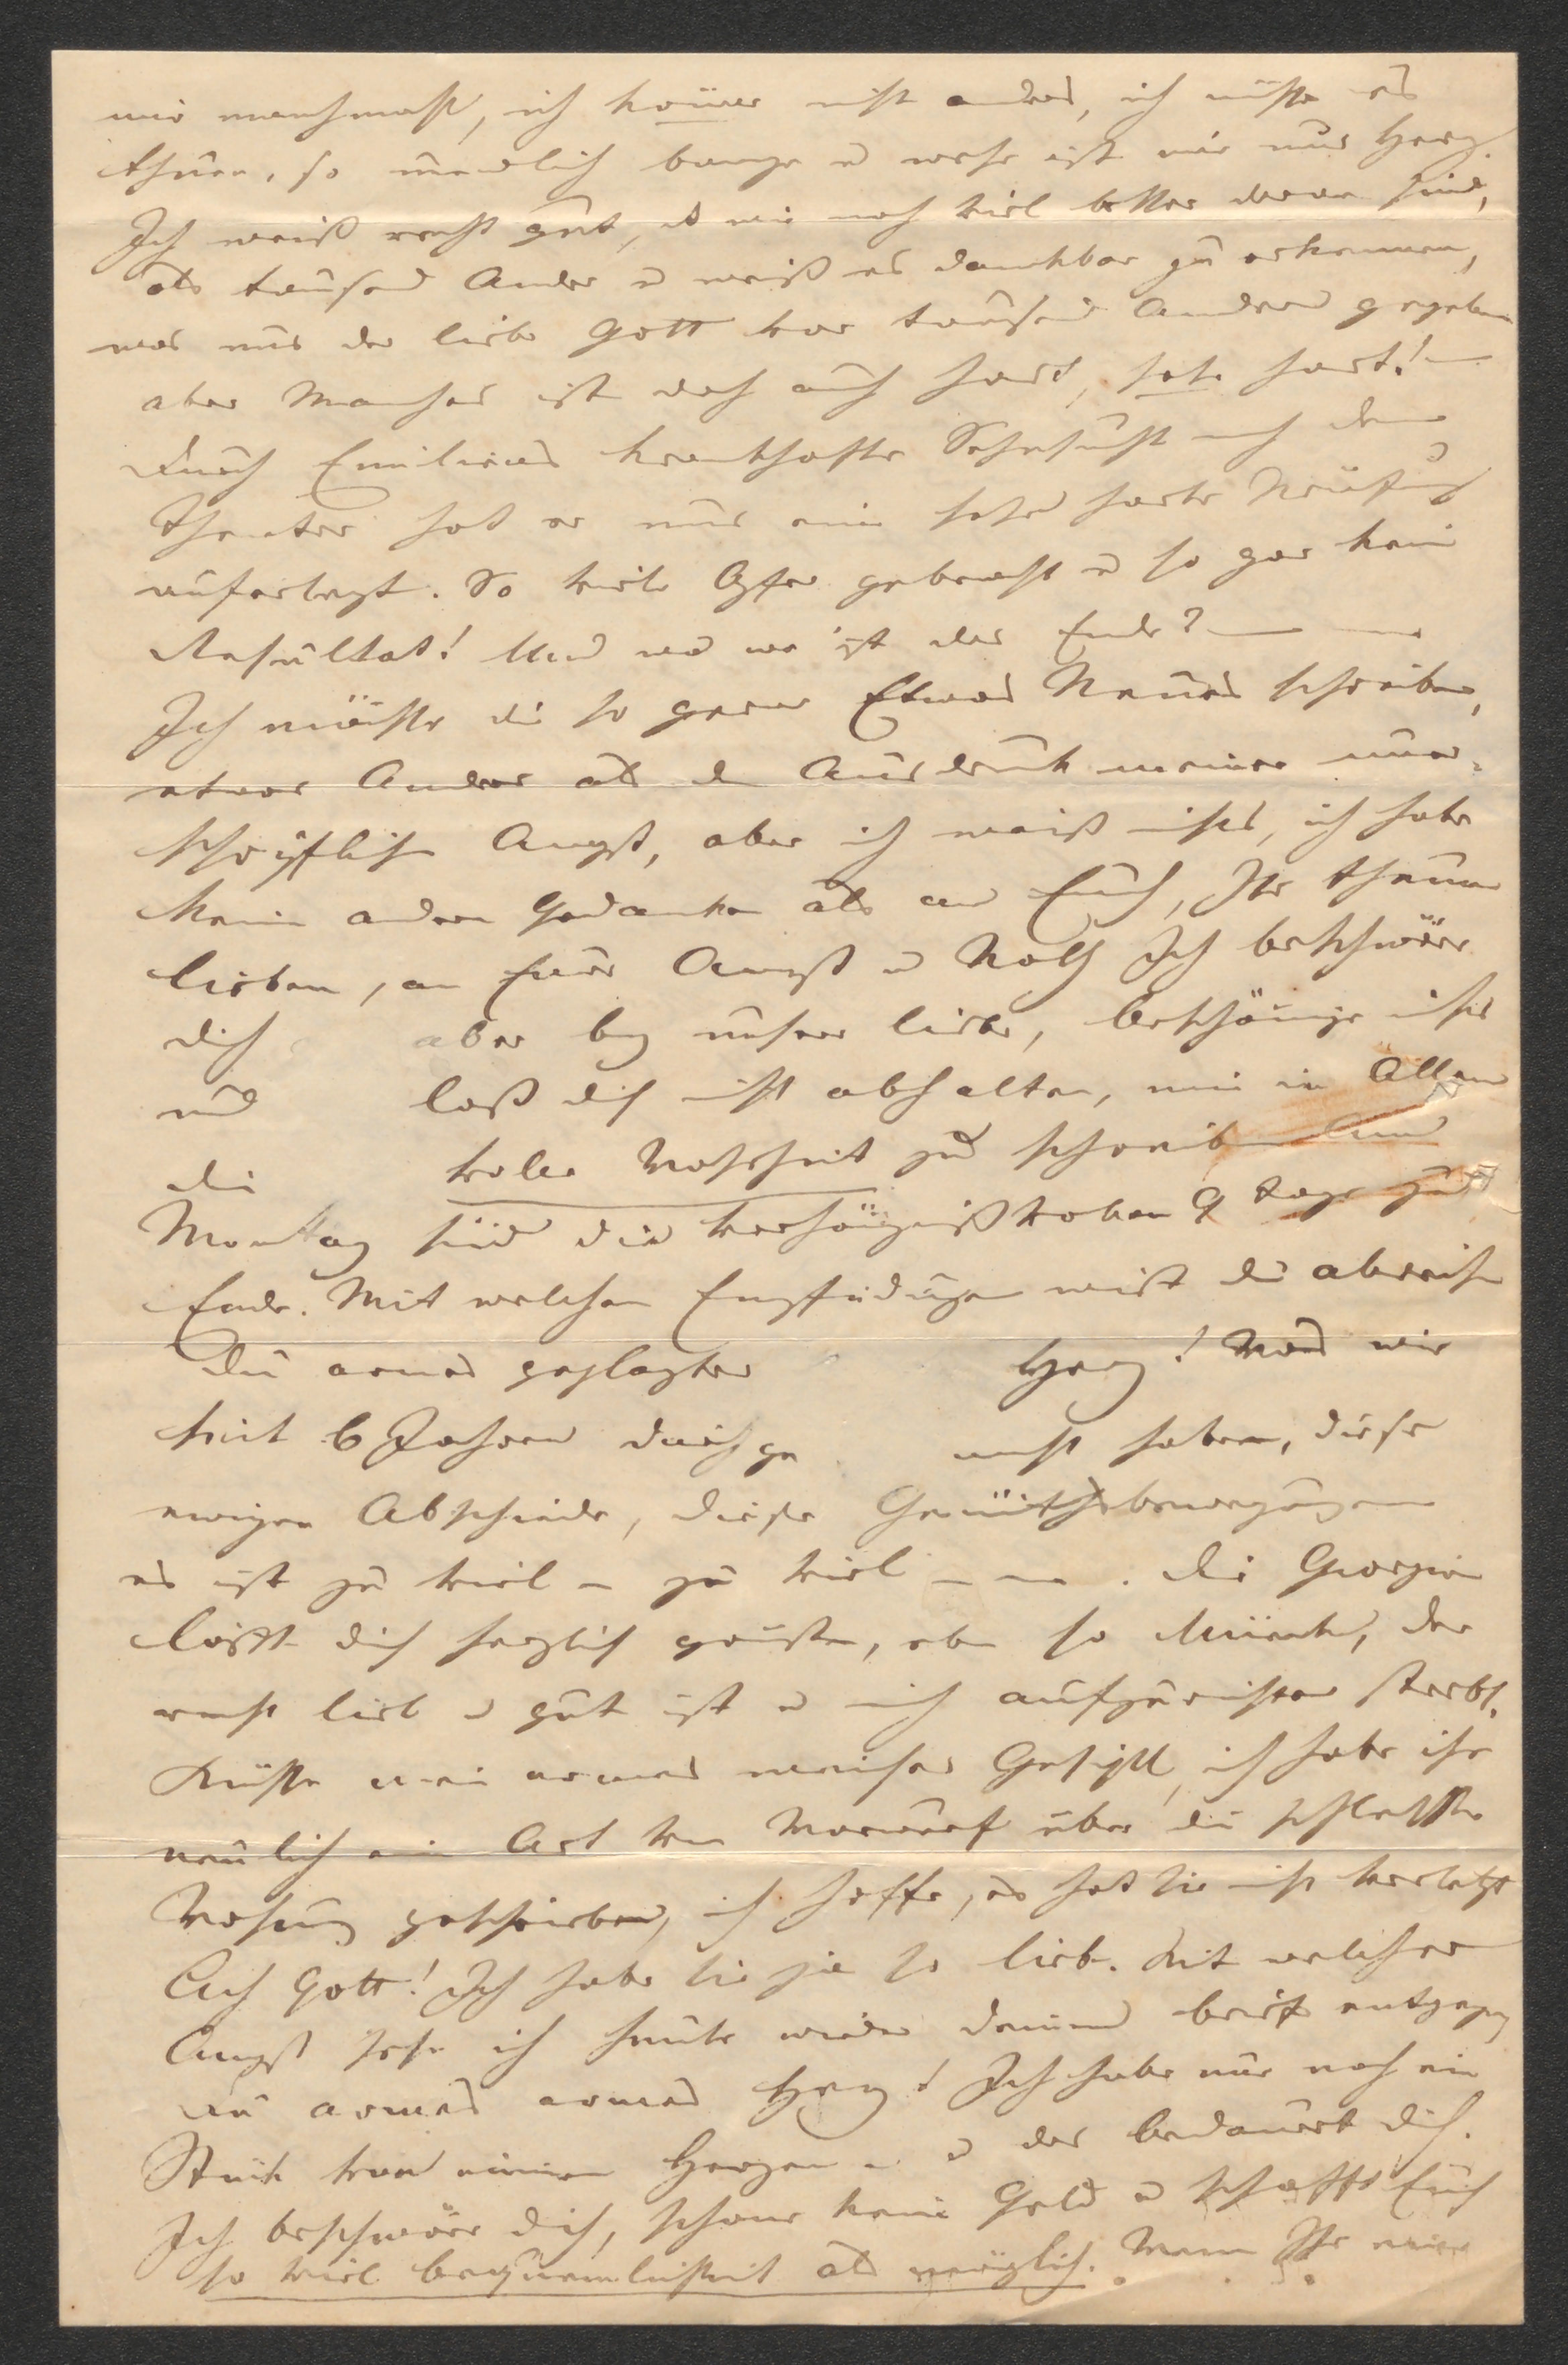 mir manchmahl, ich könne nicht anders, ich müßte es
thuen, so unendlich bange u wehe ist mir ums Herz.
Ich weiß recht gut, daß wir noch viel besser daran sind,
als tausend Andre u weiß es dankbar zu erkennen,
was uns der liebe Gott vor tausend Andern gegeben
aber Manches ist doch auch hart, sehr hart! —
Durch Emiliens krankhafte Sehnsucht nach dem
Theater hat er uns eine sehr harte Prüfung
auferlegt. So viele Opfer gebracht u so gar kein
Resultat! Und wo wo ist das Ende? — —
Ich möchte dir so gerne Etwas Neues schreiben,
etwas Andres als den Ausdruck meiner uner-
schöpflichen Angst, aber ich weiß nichts, ich habe
keine andern Gedanken als an Euch, Ihr theuren
lieben, an Eure Angst u Noth Ich beschwöre
dich aber bey unsrer liebe, beschönige nichts
und laß dich nicht abhalten, mir in Allem
die volle Wahrheit zu schreiben
Montag sind die verhängnißvollen 9 Tage zu
Ende. Mit welchen Empfindungen wirst du abreisen
Du armes geplagtes Herz! Was wir
seit 6 Jahren durchge macht haben, diese
ewigen Abschiede, diese Gemüthsbewegungen
es ist zu viel – zu viel – – . Die Georgine
läßt dich herzlich grüßen, eben so Münch, der
recht lieb u gut ist u mich aufzurichten strebt.
Küsse mein armes weiches Geschöpf, ich habe ihr
neulich eine Art von Vorwurf über die schlechte
Wohnung geschrieben, ich hoffe, es hat sie nicht verletzt
Ach Gott! Ich habe sie ja so lieb. Mit welcher
Angst sehe ich heute wieder deinem brief entgegen
du armes armes Herz! Ich habe nur noch ein
Stück von einem Herzen u das bedauert dich.
Ich beschwöre dich, schone kein Geld u schafft Euch
so viel bequemlichkeit als möglich. Wenn Ihr